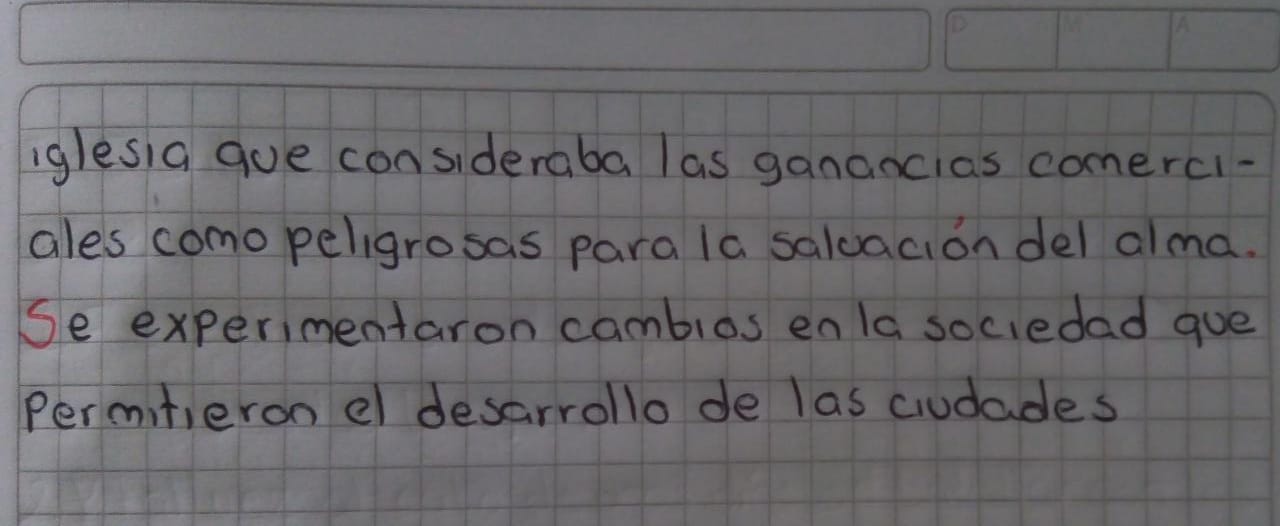 D M A
iglesia que consideraba las ganancias comerci-
ales como peligrosas para la salvación del alma.
Se experimentaron cambios en la sociedad que
Permitieron el desarrollo de las ciudades